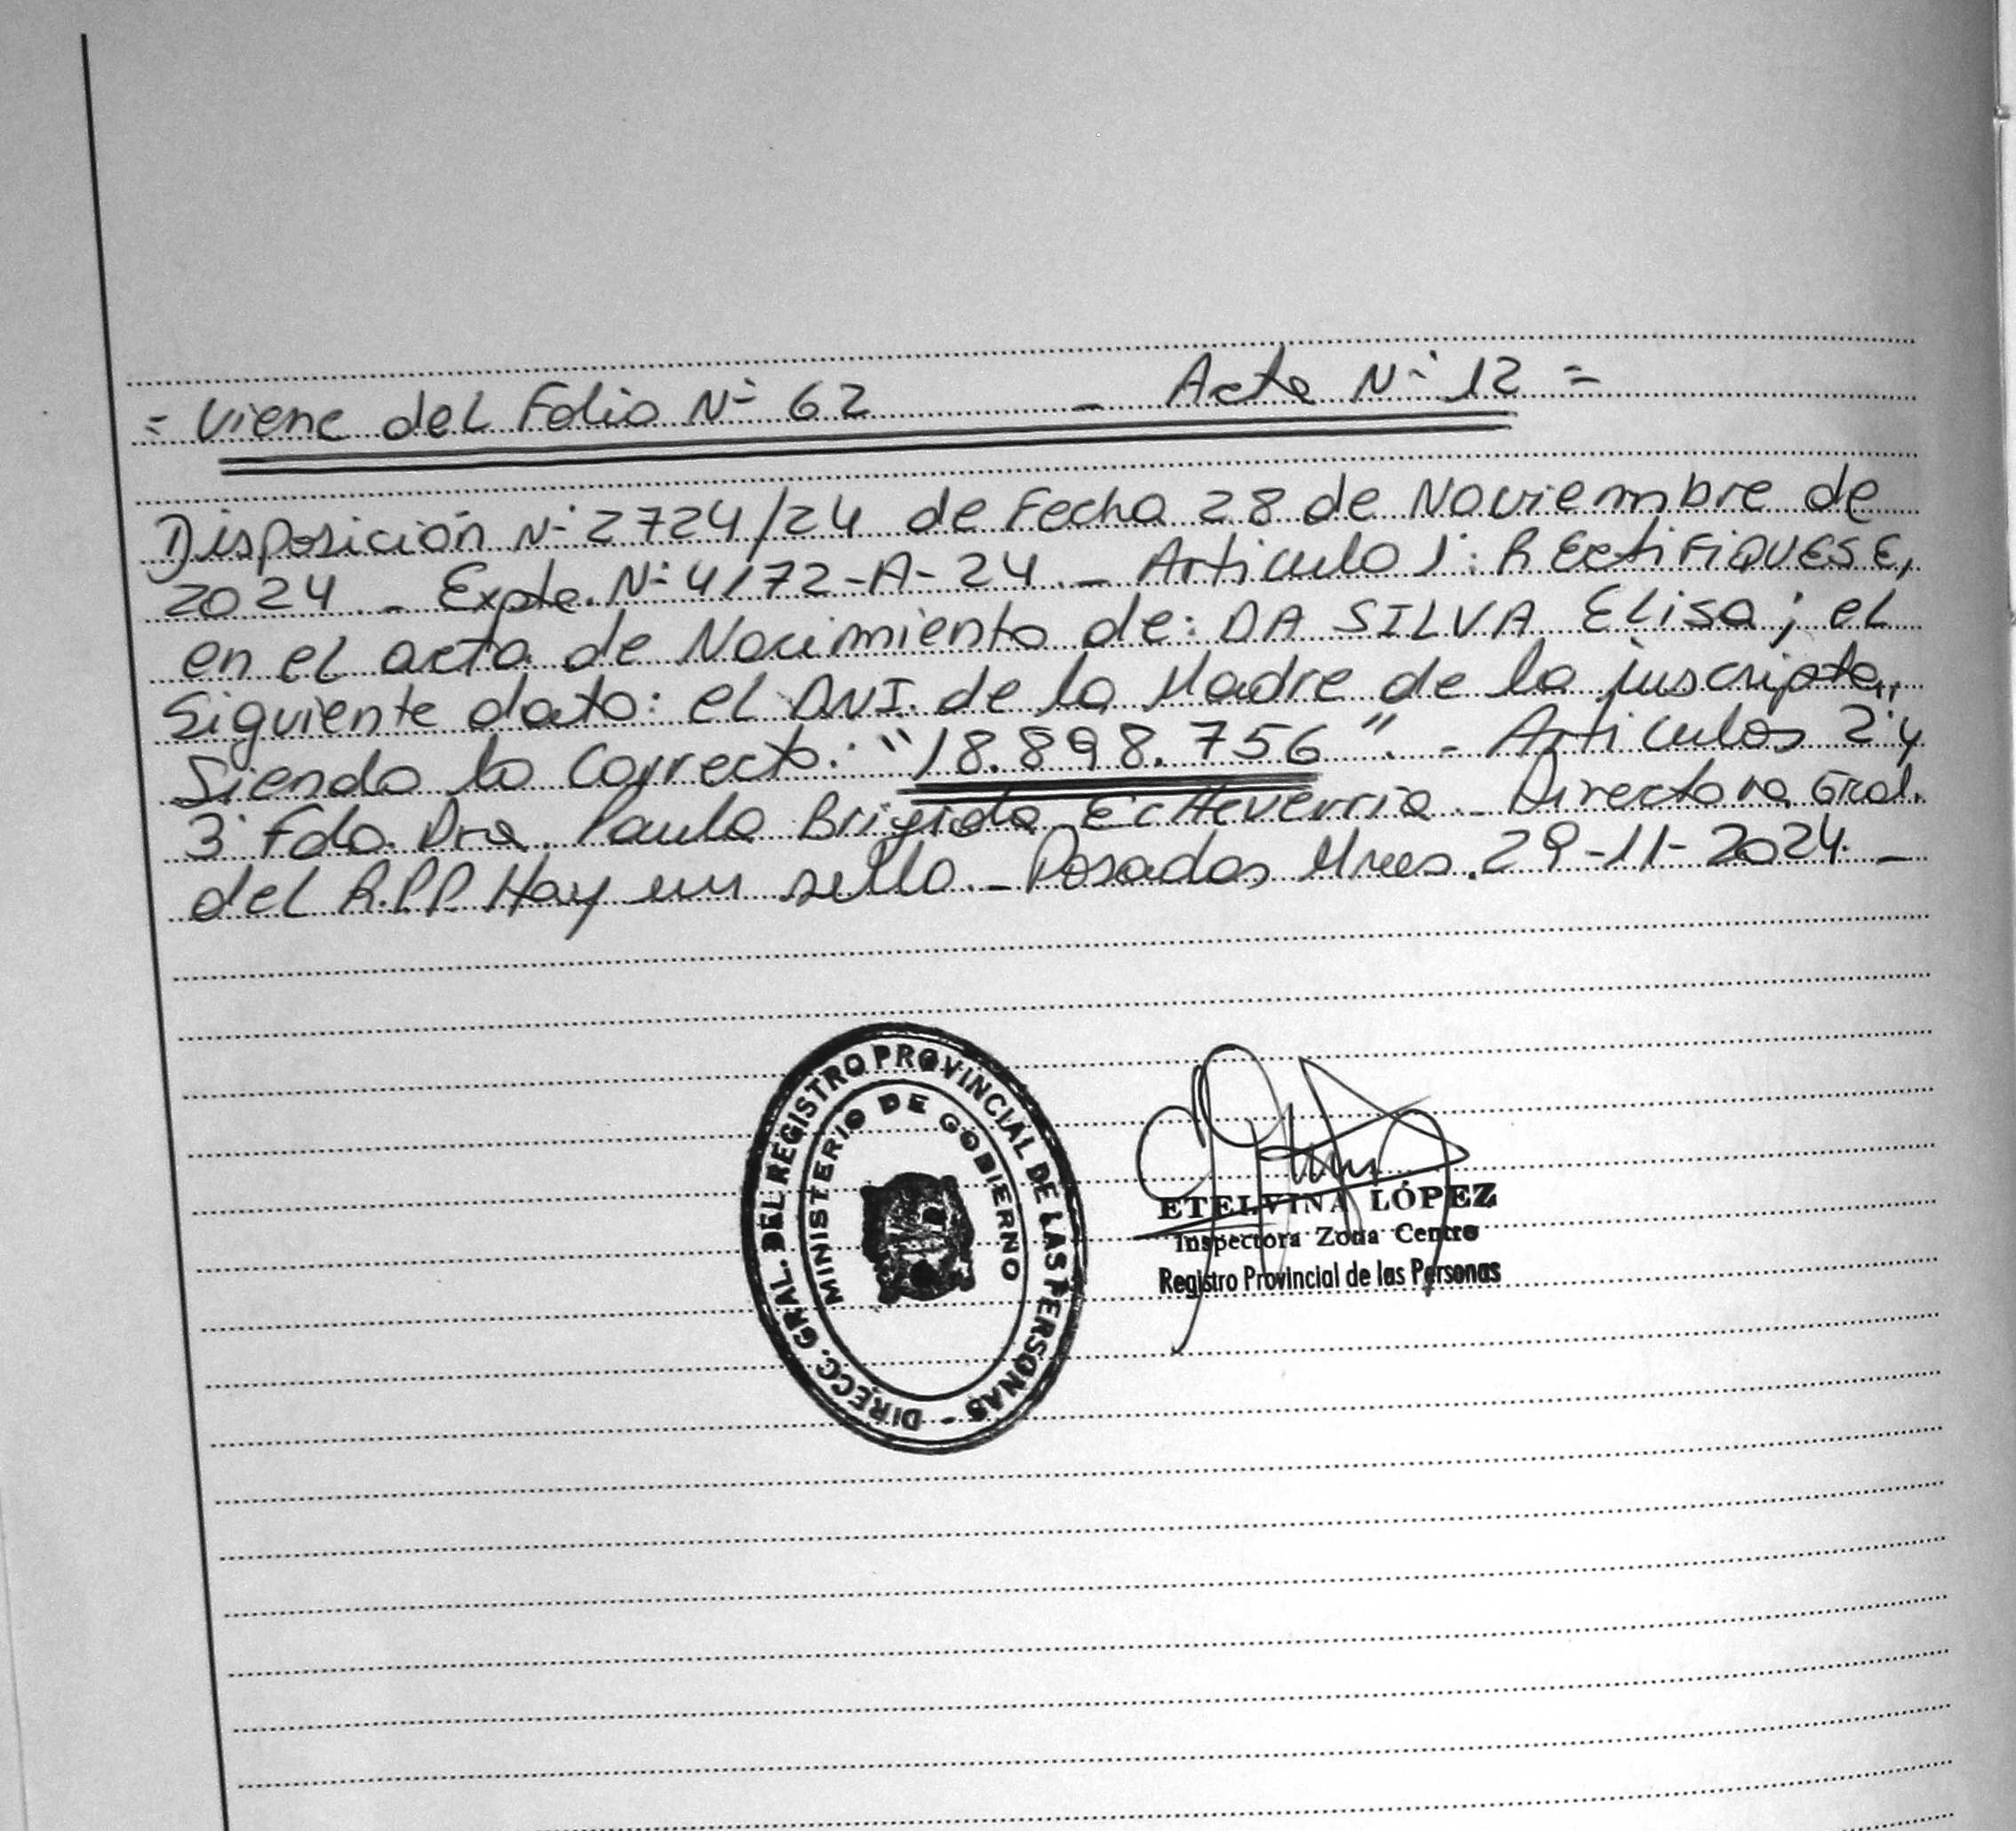 = Viene del Folio N° 62 - Acta N° 12 =
Disposición N° 2724/24 de Fecha 28 de Noviembre de
2024 - Expte. N° 4172-A-24. - Articulo 1°: RECtiFiQUESE,
en el acta de Nacimiento de: DA SILVA Elisa; el
Siguiente dato: el DNI. de la Madre de la inscripta,,
Siendo lo Correcto: "18.898.756". - Articulos 2° y
3° Fdo. Dra. Paula Brigida EcHeverria - Directora Gral.
del R.P.P. Hay un sello. - Posadas Mnes. 29-11-2024. -
DIRECC. GRAL. DEL REGISTRO PROVINCIAL DE LAS PERSONAS -
MINISTERIO DE GOBIERNO
ETELVINA LÓPEZ
Inspectora Zona Centro
Registro Provincial de las Personas